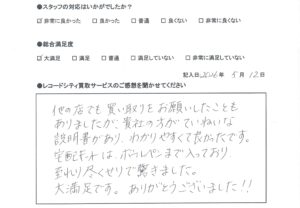 ●スタッフの対応はいかがでしたか?
☑非常に良かった □良かった □普通 □良くない □非常に良くない
●総合満足度
☑大満足 □満足 □普通 □満足していない □非常に満足していない
記入日2016年 5月 12日
●レコードシティ買取サービスのご感想を聞かせてください
他の店でも買い取りをお願いしたことも
ありましたが、貴社の方がていねいな
説明書があり、わかりやすくて良かったです。
宅配キットは、ボールペンまで入っており
至れり尽くせりで驚きました。
大満足です。ありがとうございました!!